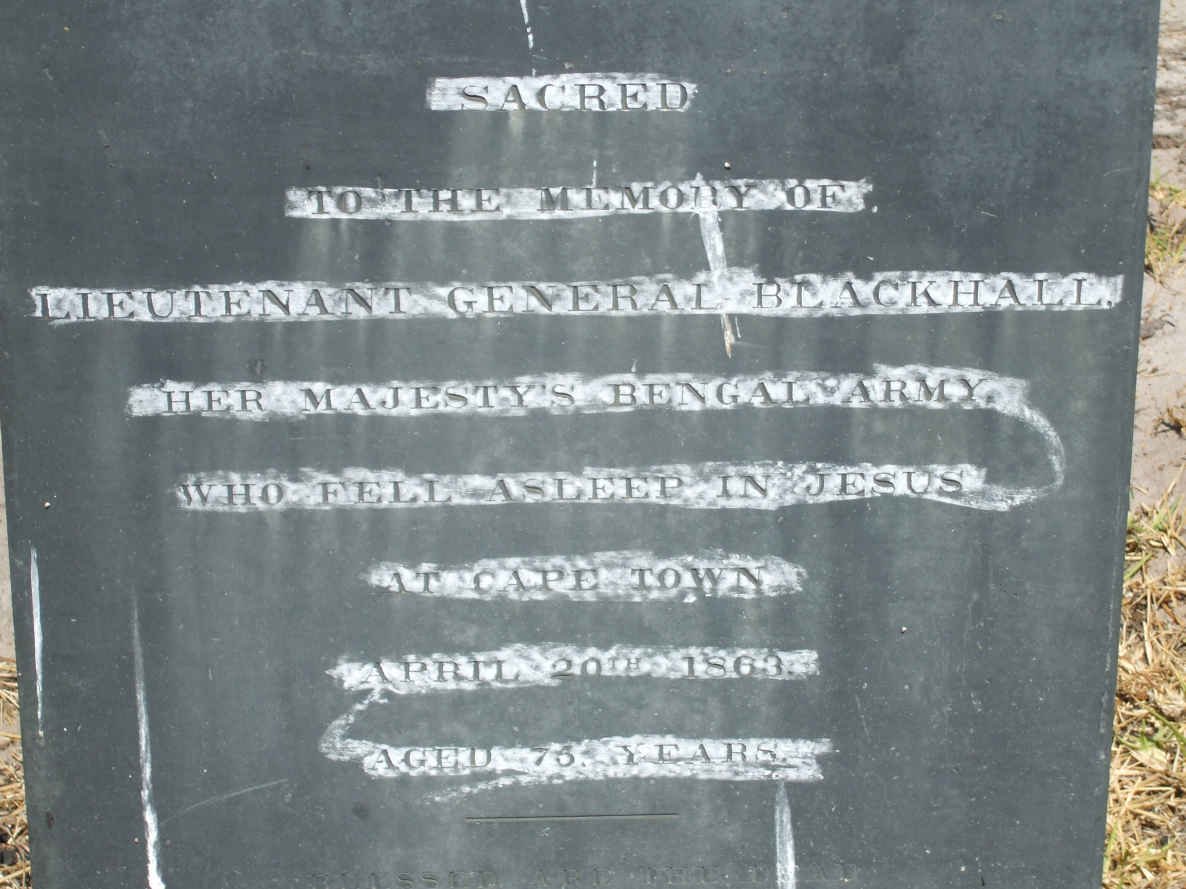 SACRED
TO THE MEMORY OF
LIEUTENANT GENERAL BLACKHALL,
HER MAJESTY'S BENGAL ARMY,
WHO FELL ASLEEP IN JESUS
AT CAPE TOWN
APRIL 20TH 1863.
AGED 75, YEARS.
BLESSED ARE THE DEAD